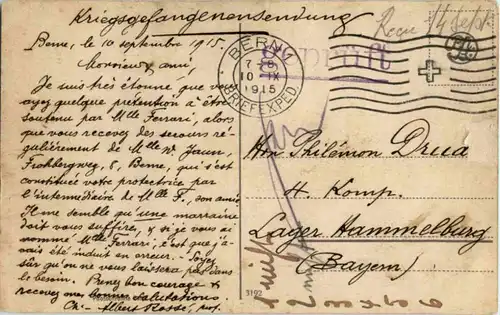 Kriegsgefangenensendung
Berne, le 10 septembre 1915.
Monsieur et ami,
Je suis très étonné que vous
ayez quelque prétention à être
soutenu par Mlle Ferrari, alors
que vous recevez des secours ré-
gulièrement de Mlle
Frohbergweg, 8, Berne, qui s'est
constituée votre protectrice par
l'intermédiaire de Mlle F., son amie.
Il me semble qu'une marraine
doit vous suffire, & si je vous ai
nommé Mlle Ferrari, c'est que j'a-
vais été induit en erreur. - Soyez
sûr qu'on ne vous laissera pas dans
le besoin. Prenez bon courage &
recevez mes bonnes salutations.
Ch. Albert Rossé, prof.
BERN 1
7-8
10 IX
1915
BRIEFEXPED.
Geprüft
14 Sept
Hrn Philémon Drua
4. Komp.
Lager Hammelburg
(Bayern)
3192
1
2 3 4 5 6